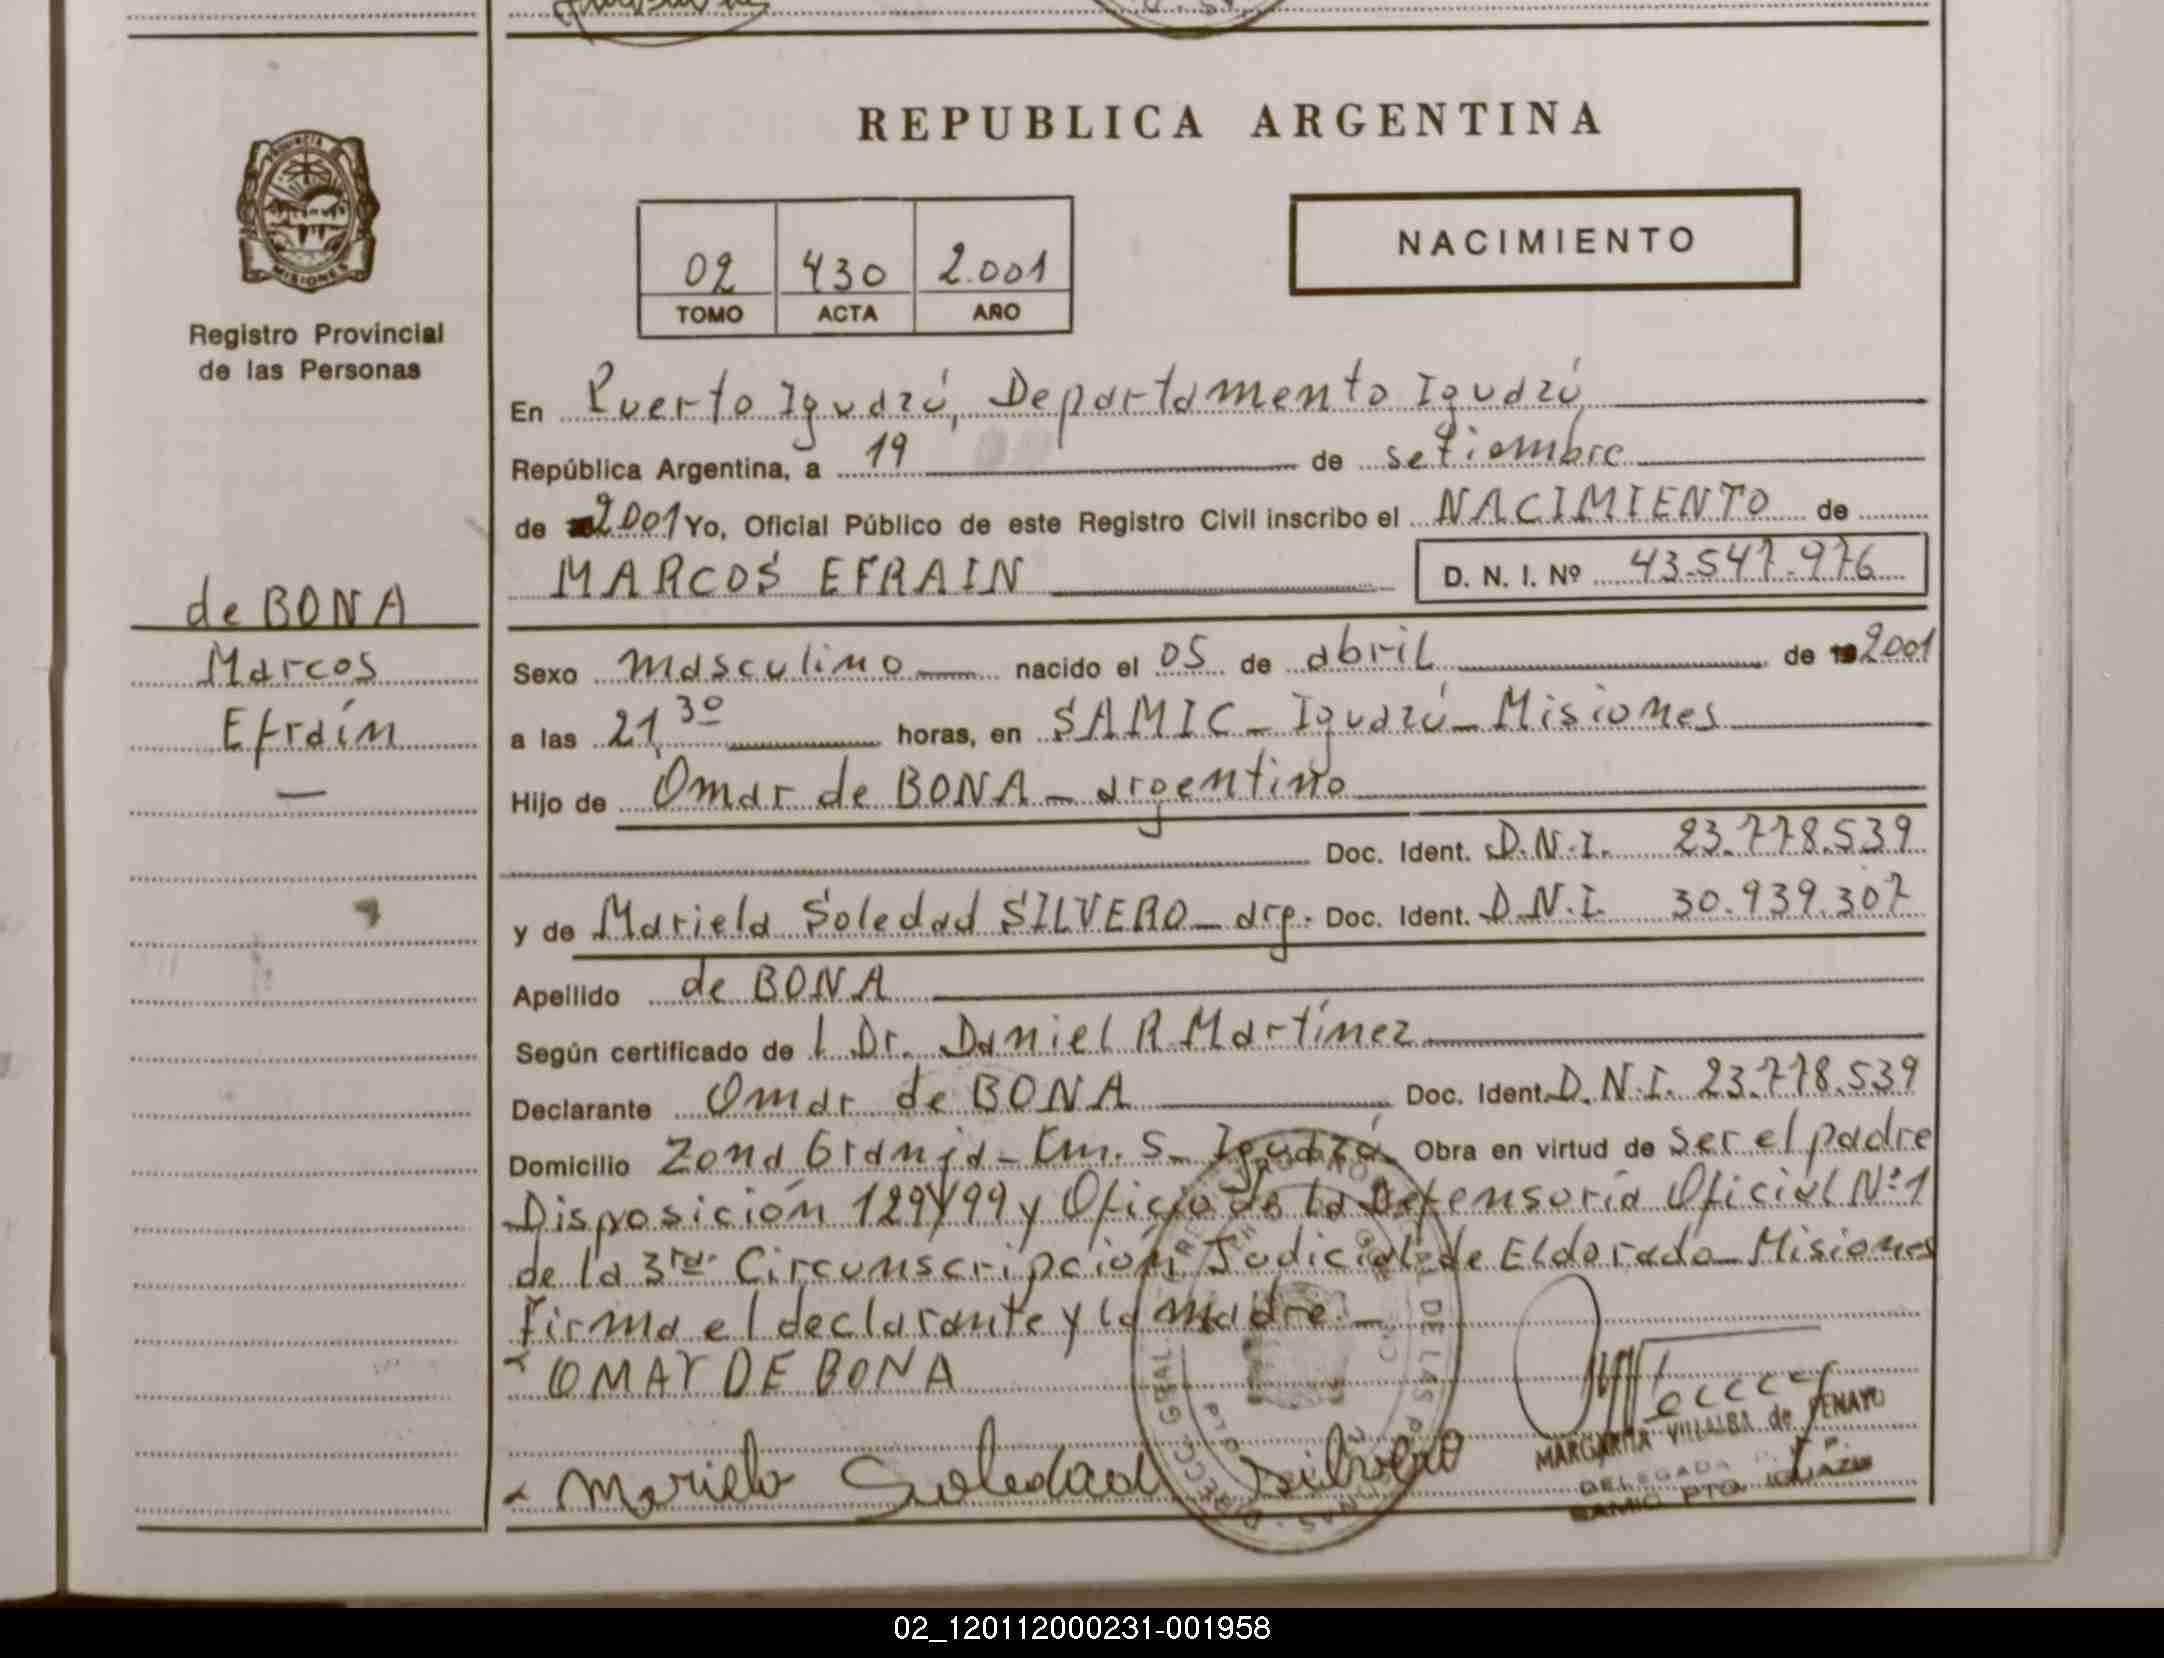 REPUBLICA ARGENTINA
PROVINCIA DE
MISIONES
Registro Provincial
de las Personas
02 430 2.001
TOMO ACTA AÑO
NACIMIENTO
En Puerto Iguazú, Departamento Iguazú
República Argentina, a 19 de setiembre
de 2001 Yo, Oficial Público de este Registro Civil inscribo el NACIMIENTO de
MARCOS EFRAIN D. N. I. Nº 43.547.976
de BONA
Marcos
Efraín
Sexo masculino nacido el 05 de abril de 2001
a las 21,30 horas, en SAMIC - Iguazú - Misiones
Hijo de Omar de BONA - argentino
Doc. Ident. D.N.I. 23.778.539
y de Mariela Soledad SILVERO - arg. Doc. Ident. D.N.I. 30.939.307
Apellido de BONA
Según certificado de l Dr. Daniel R. Martínez
Declarante Omar de BONA Doc. Ident. D.N.I. 23.778.539
Domicilio Zona Granja - Km. 5 - Iguazú Obra en virtud de ser el padre
Disposición 129/99 y Oficio de la Defensoría Oficial Nº 1
de la 3ra. Circunscripción Judicial de Eldorado - Misiones
Firma el declarante y la madre. -
OMAR DE BONA
Mariela Soledad Silvero
MARGARITA VILLALBA de PENAYO
DELEGADA
SAMIC PTO. IGUAZU
02_120112000231-001958